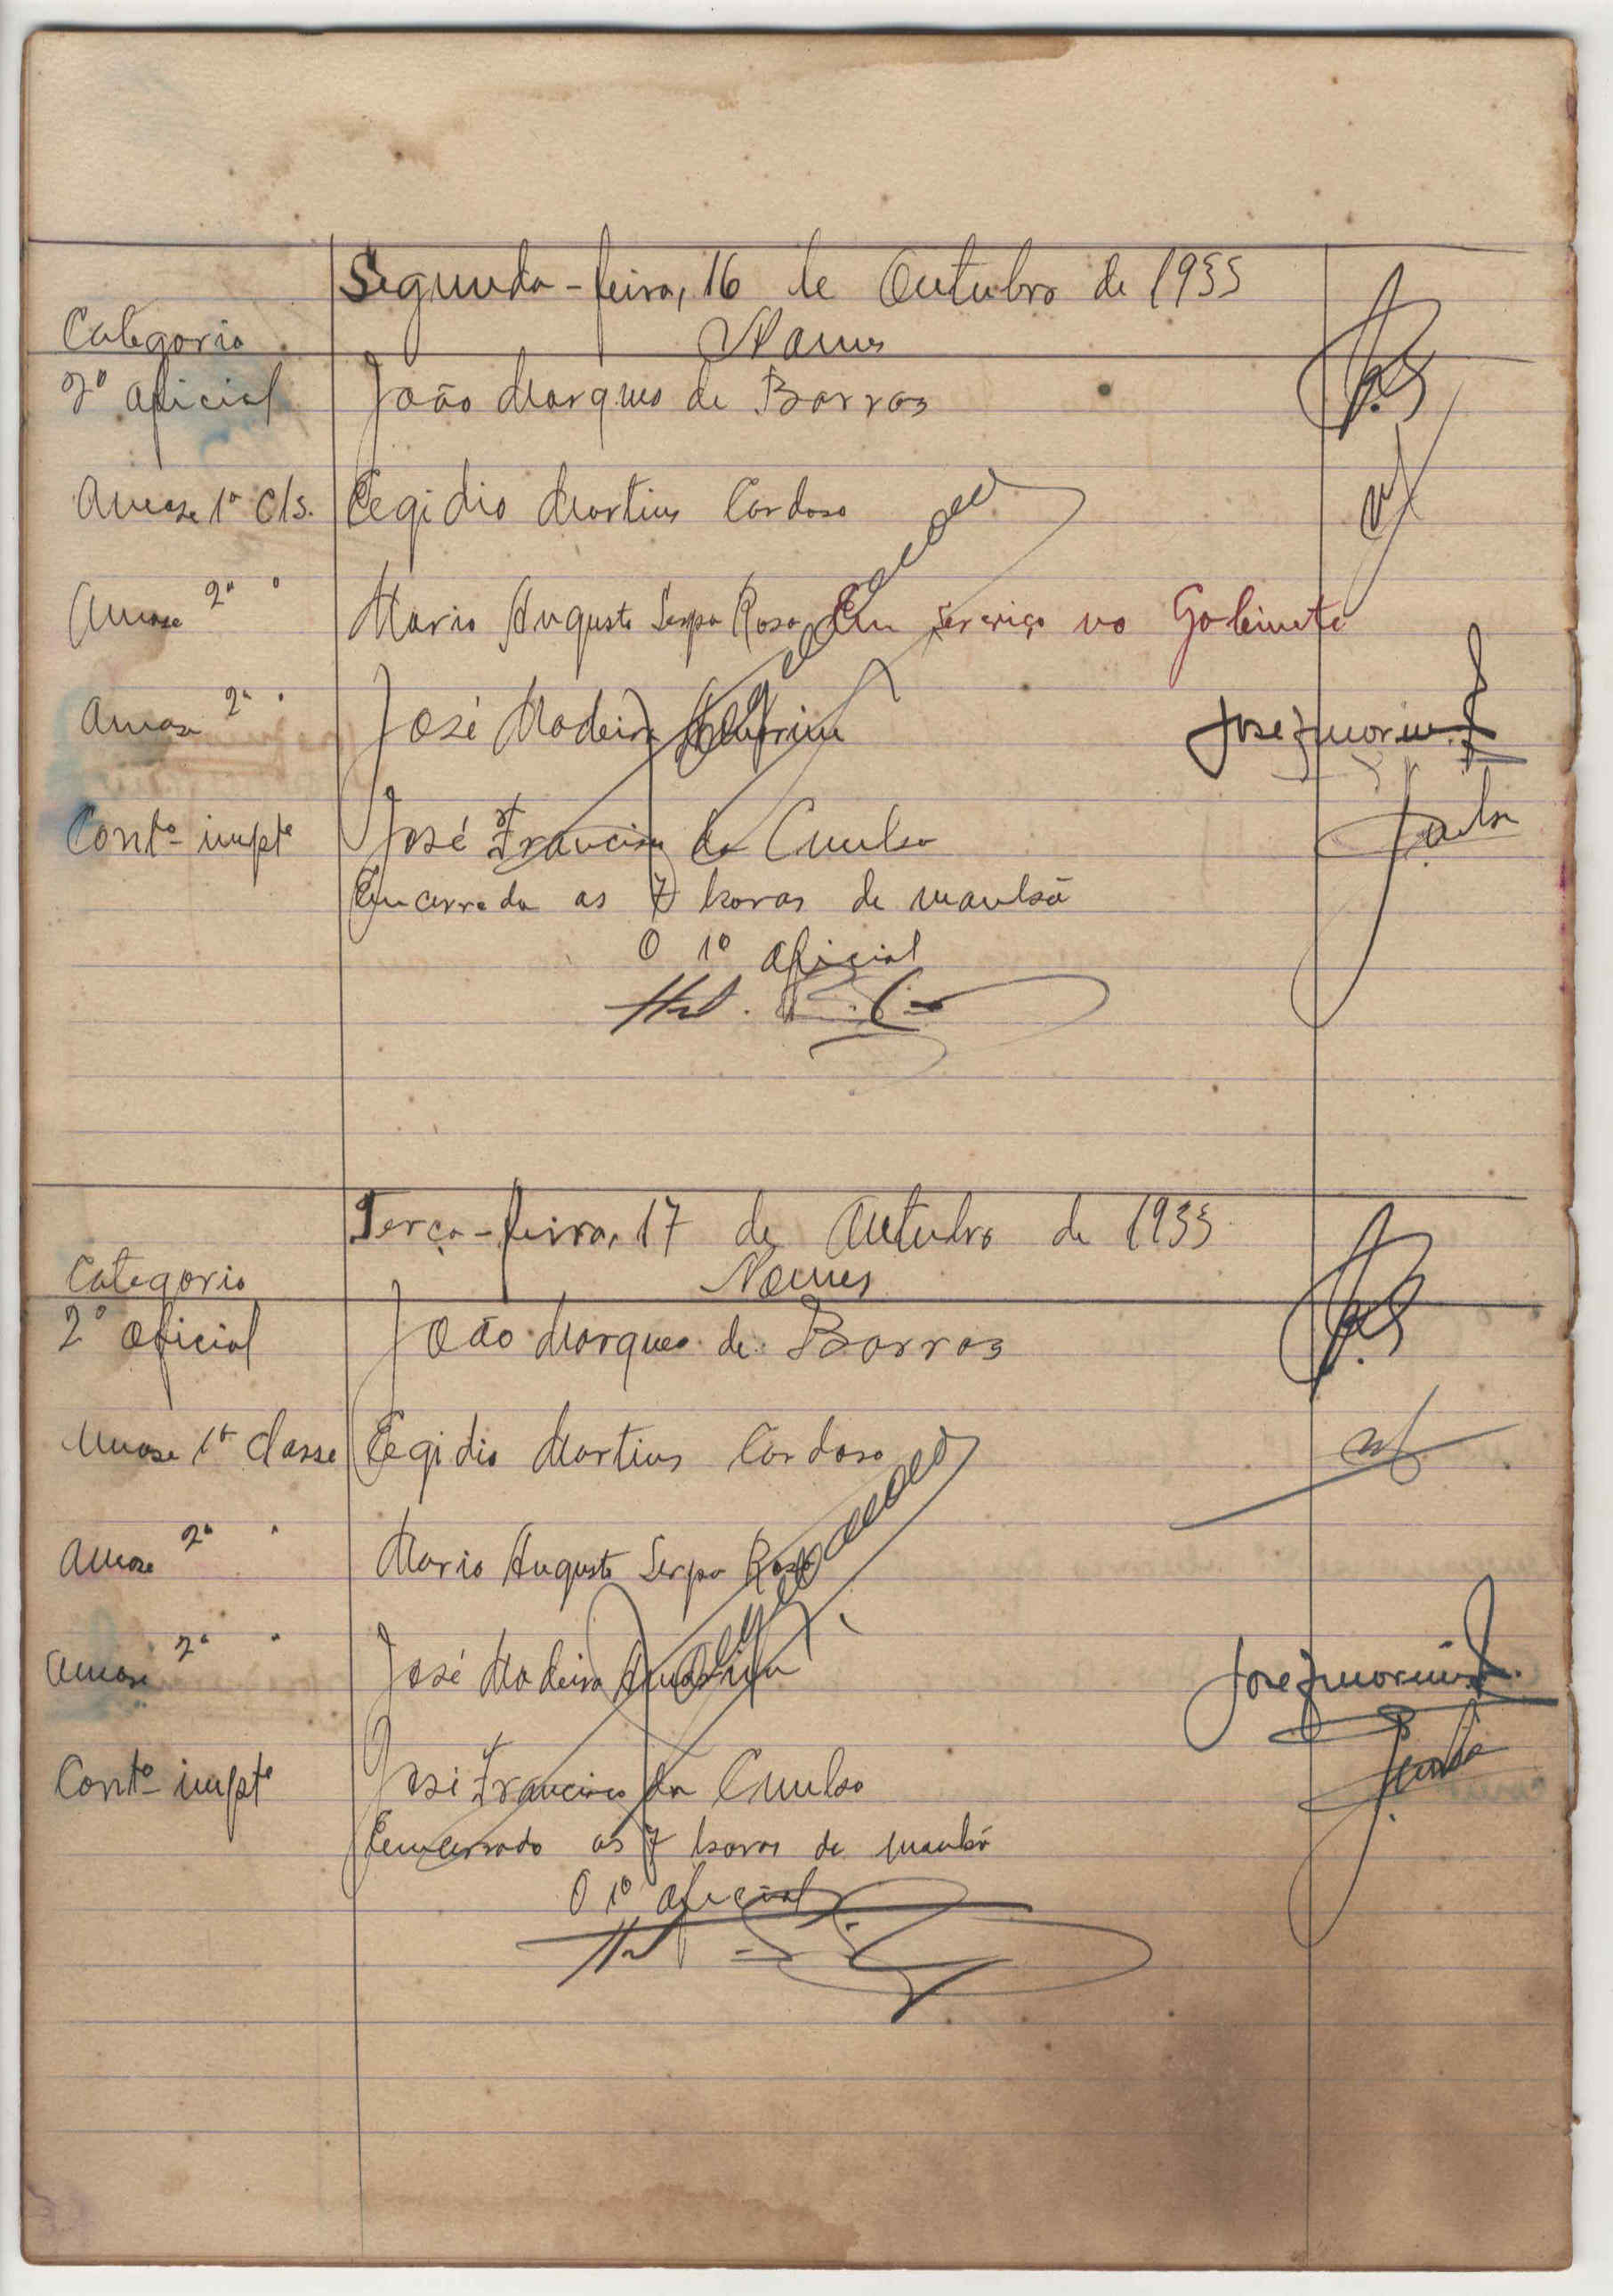 Segunda-feira, 16 de Outubro de 1933
Categoria Nomes
2º Oficial João Marques de Barros
Amase 1ª Cls. Eegidio Martins Cardoso
Amase 2ª " Mario Augusto Serpa Rosa Em serviço no Gabinete
Amase 2ª " José Madeira Amorim José Amorim
Contº impte José Francisco da Cunha
Encerrado as 7 horas da manhã
O 1º Oficial
Terça-feira, 17 de Outubro de 1933
Categoria Nomes
2º Oficial João Marques de Barros
Amase 1ª Classe Eegidio Martins Cardoso
Amase 2ª " Mario Augusto Serpa Rosa
Amase 2ª " José Madeira Amorim José Amorim
Contº impte José Francisco da Cunha
Eencerrado as 7 horas da manhã
O 1º Oficial